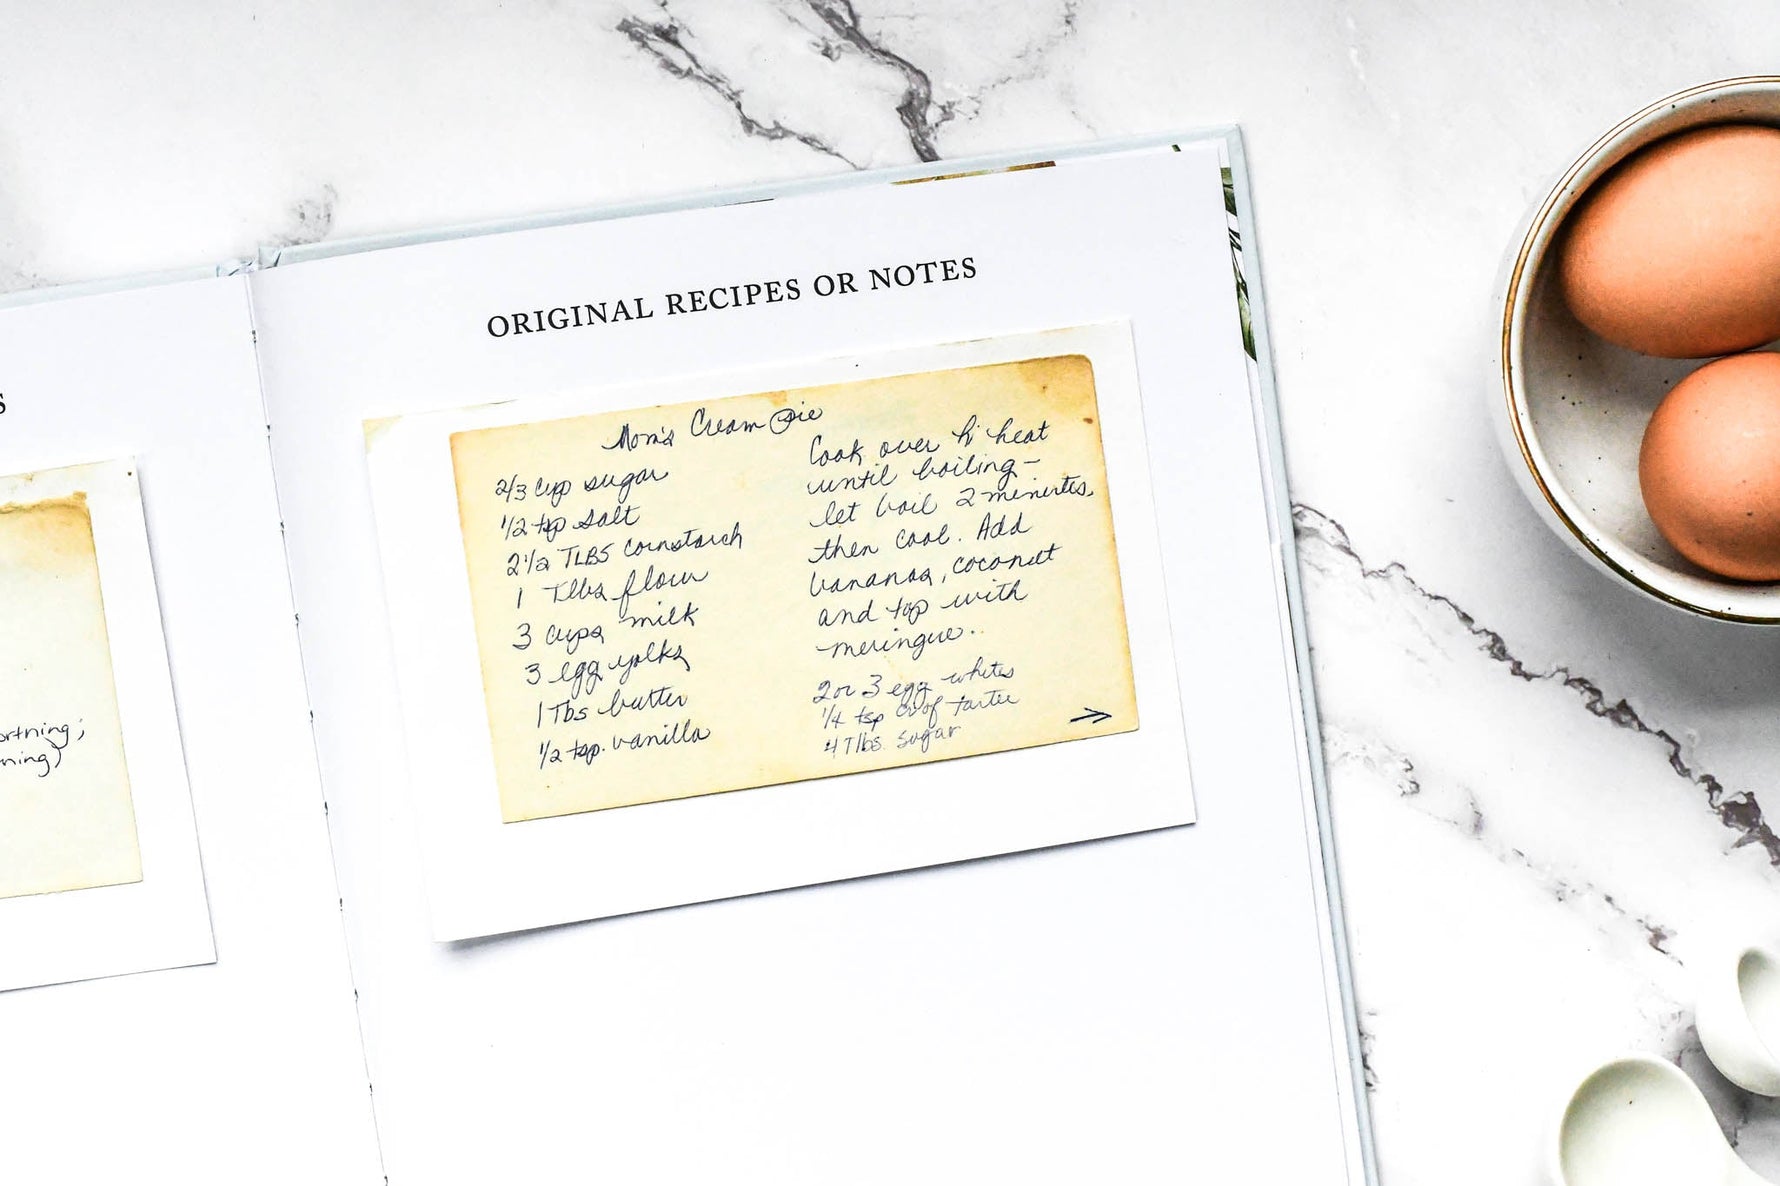 S
ortning;
ning)
ORIGINAL RECIPES OR NOTES
Mom's Cream Pie
2/3 cup sugar
1/2 tsp salt
2 1/2 TLBS cornstarch
1 Tlbs flour
3 cups milk
3 egg yolks
1 Tbs butter
1/2 tsp. vanilla
Cook over hi heat
until boiling-
let boil 2 minutes,
then cool. Add
bananas, coconut
and top with
meringue..
2 or 3 egg whites
1/4 tsp cr of tarter
4 Tlbs. sugar
→